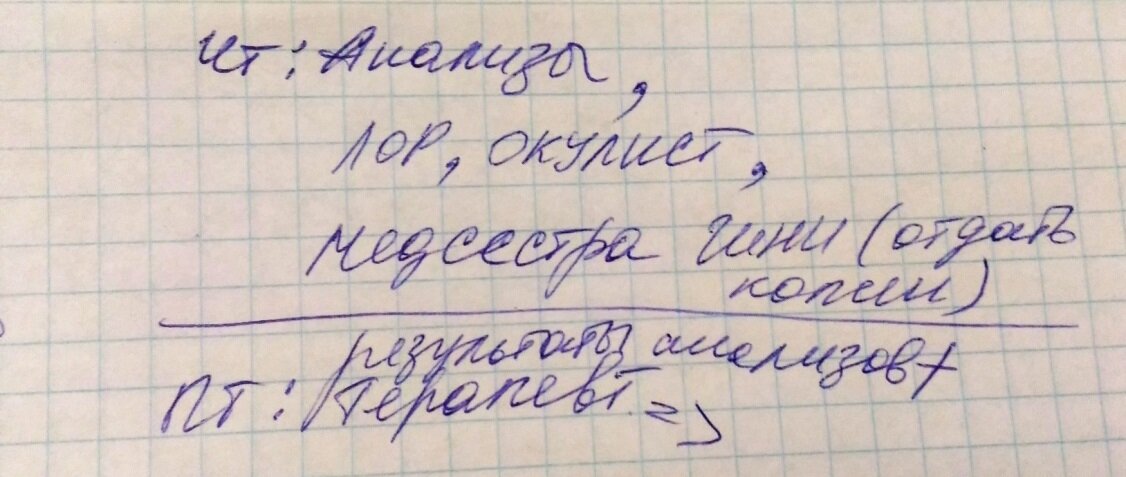 Чт: Анализы,
ЛОР, окулист,
медсестра гини (отдать
копии)
результаты анализов +
ПТ: Терапевт =>